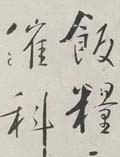 飯糧
催科